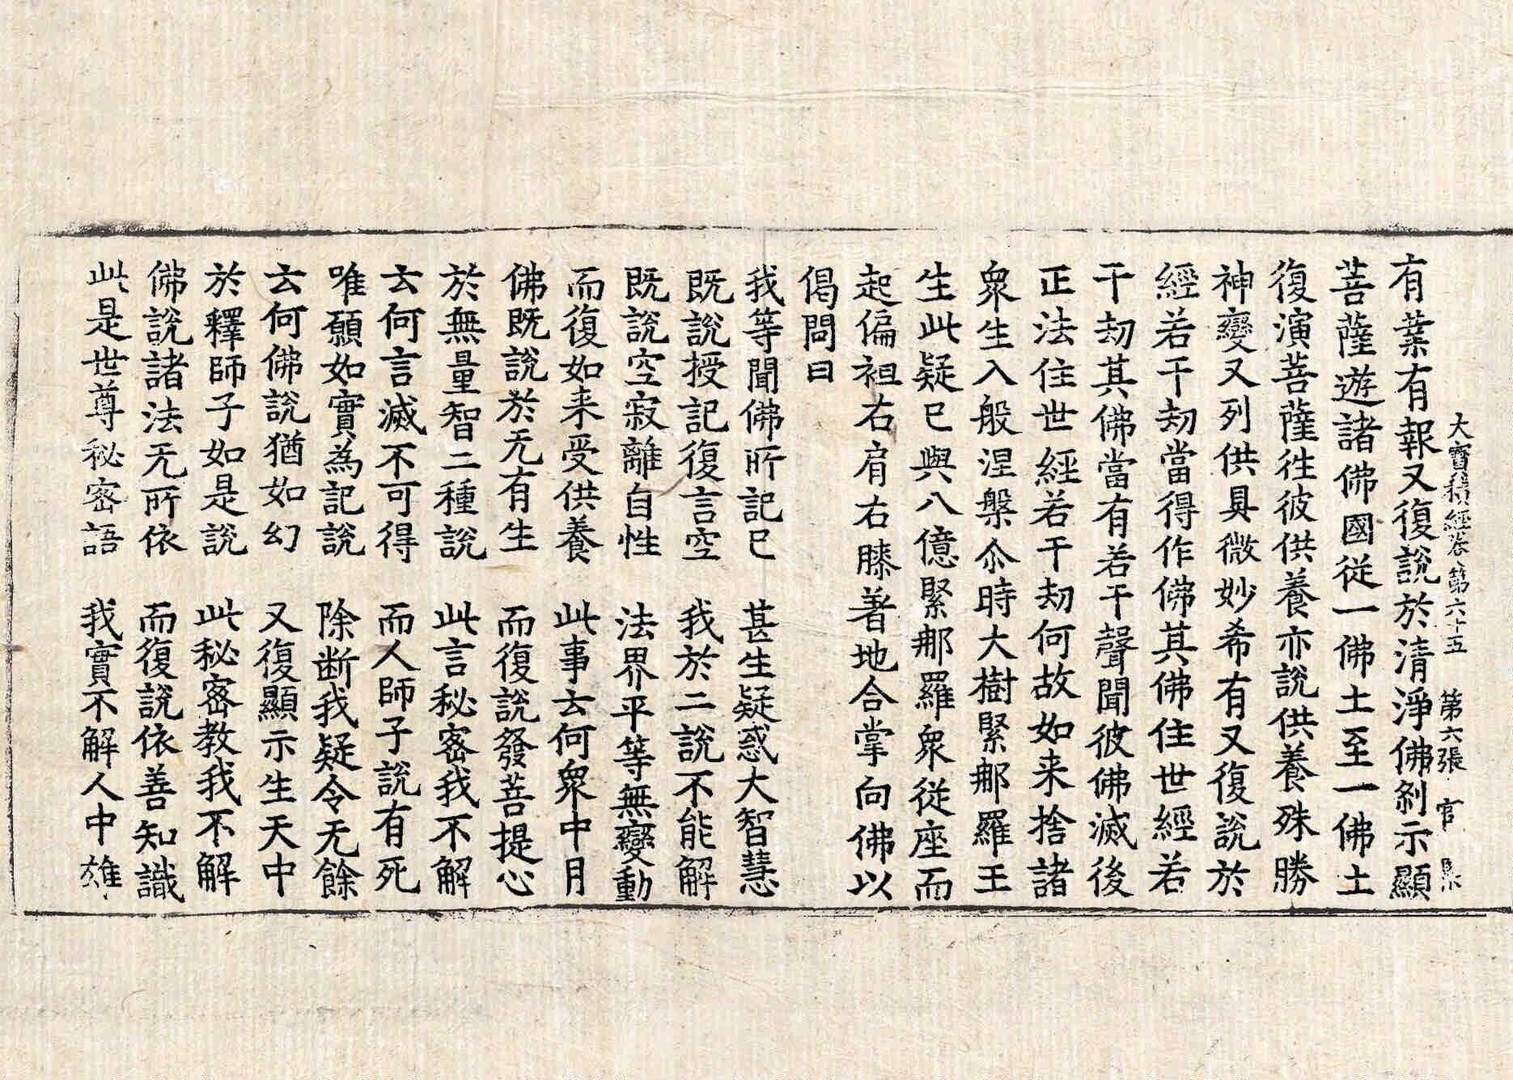 大寶積經卷第六十五　第六張　官
有業有報又復說於清淨佛刹示顯
菩薩遊諸佛國從一佛土至一佛土
復演菩薩往彼供養亦說供養殊勝
神變又列供具微妙希有又復說於
經若干劫當得作佛其佛住世經若
干劫其佛當有若干聲聞彼佛滅後
正法住世經若干劫何故如来捨諸
衆生入般涅槃尒時大樹緊那羅王
生此疑已與八億緊那羅衆從座而
起偏袒右肩右膝著地合掌向佛以
偈問曰
我等聞佛所記已　甚生疑惑大智慧
既說授記復言空　我於二說不能解
既說空寂離自性　法界平等無變動
而復如来受供養　此事云何衆中月
佛既說於无有生　而復說發菩提心
於無量智二種說　此言秘密我不解
云何言滅不可得　而人師子說有死
唯願如實為記說　除断我疑令无餘
云何佛說猶如幻　又復顯示生天中
於釋師子如是說　此秘密教我不解
佛說諸法无所依　而復說依善知識
此是世尊秘密語　我實不解人中雄